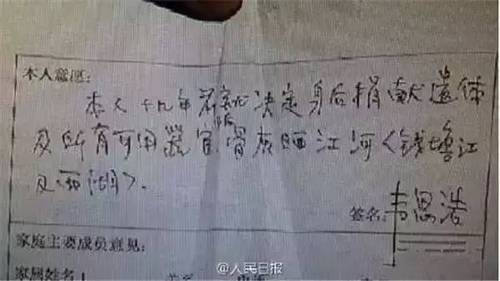 本人意愿:
本人 九年 决定身后捐献遗体
及所有可用器官,骨灰晒江河〈钱塘江
及西湖〉.
签名:韦思浩
家庭主要成员意见:
家属姓名
@人民日报